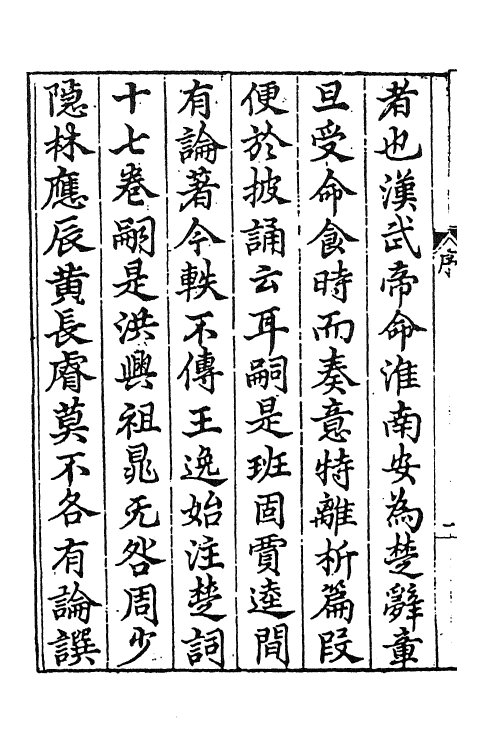 序
者也漢武帝命淮南安為楚辭章
旦受命食時而奏意特離析篇段
便於披誦云耳嗣是班固賈逵間
有論著今軼不傳王逸始注楚詞
十七卷嗣是洪興祖晁旡咎周少
隱林應辰黄長睿莫不各有論譔